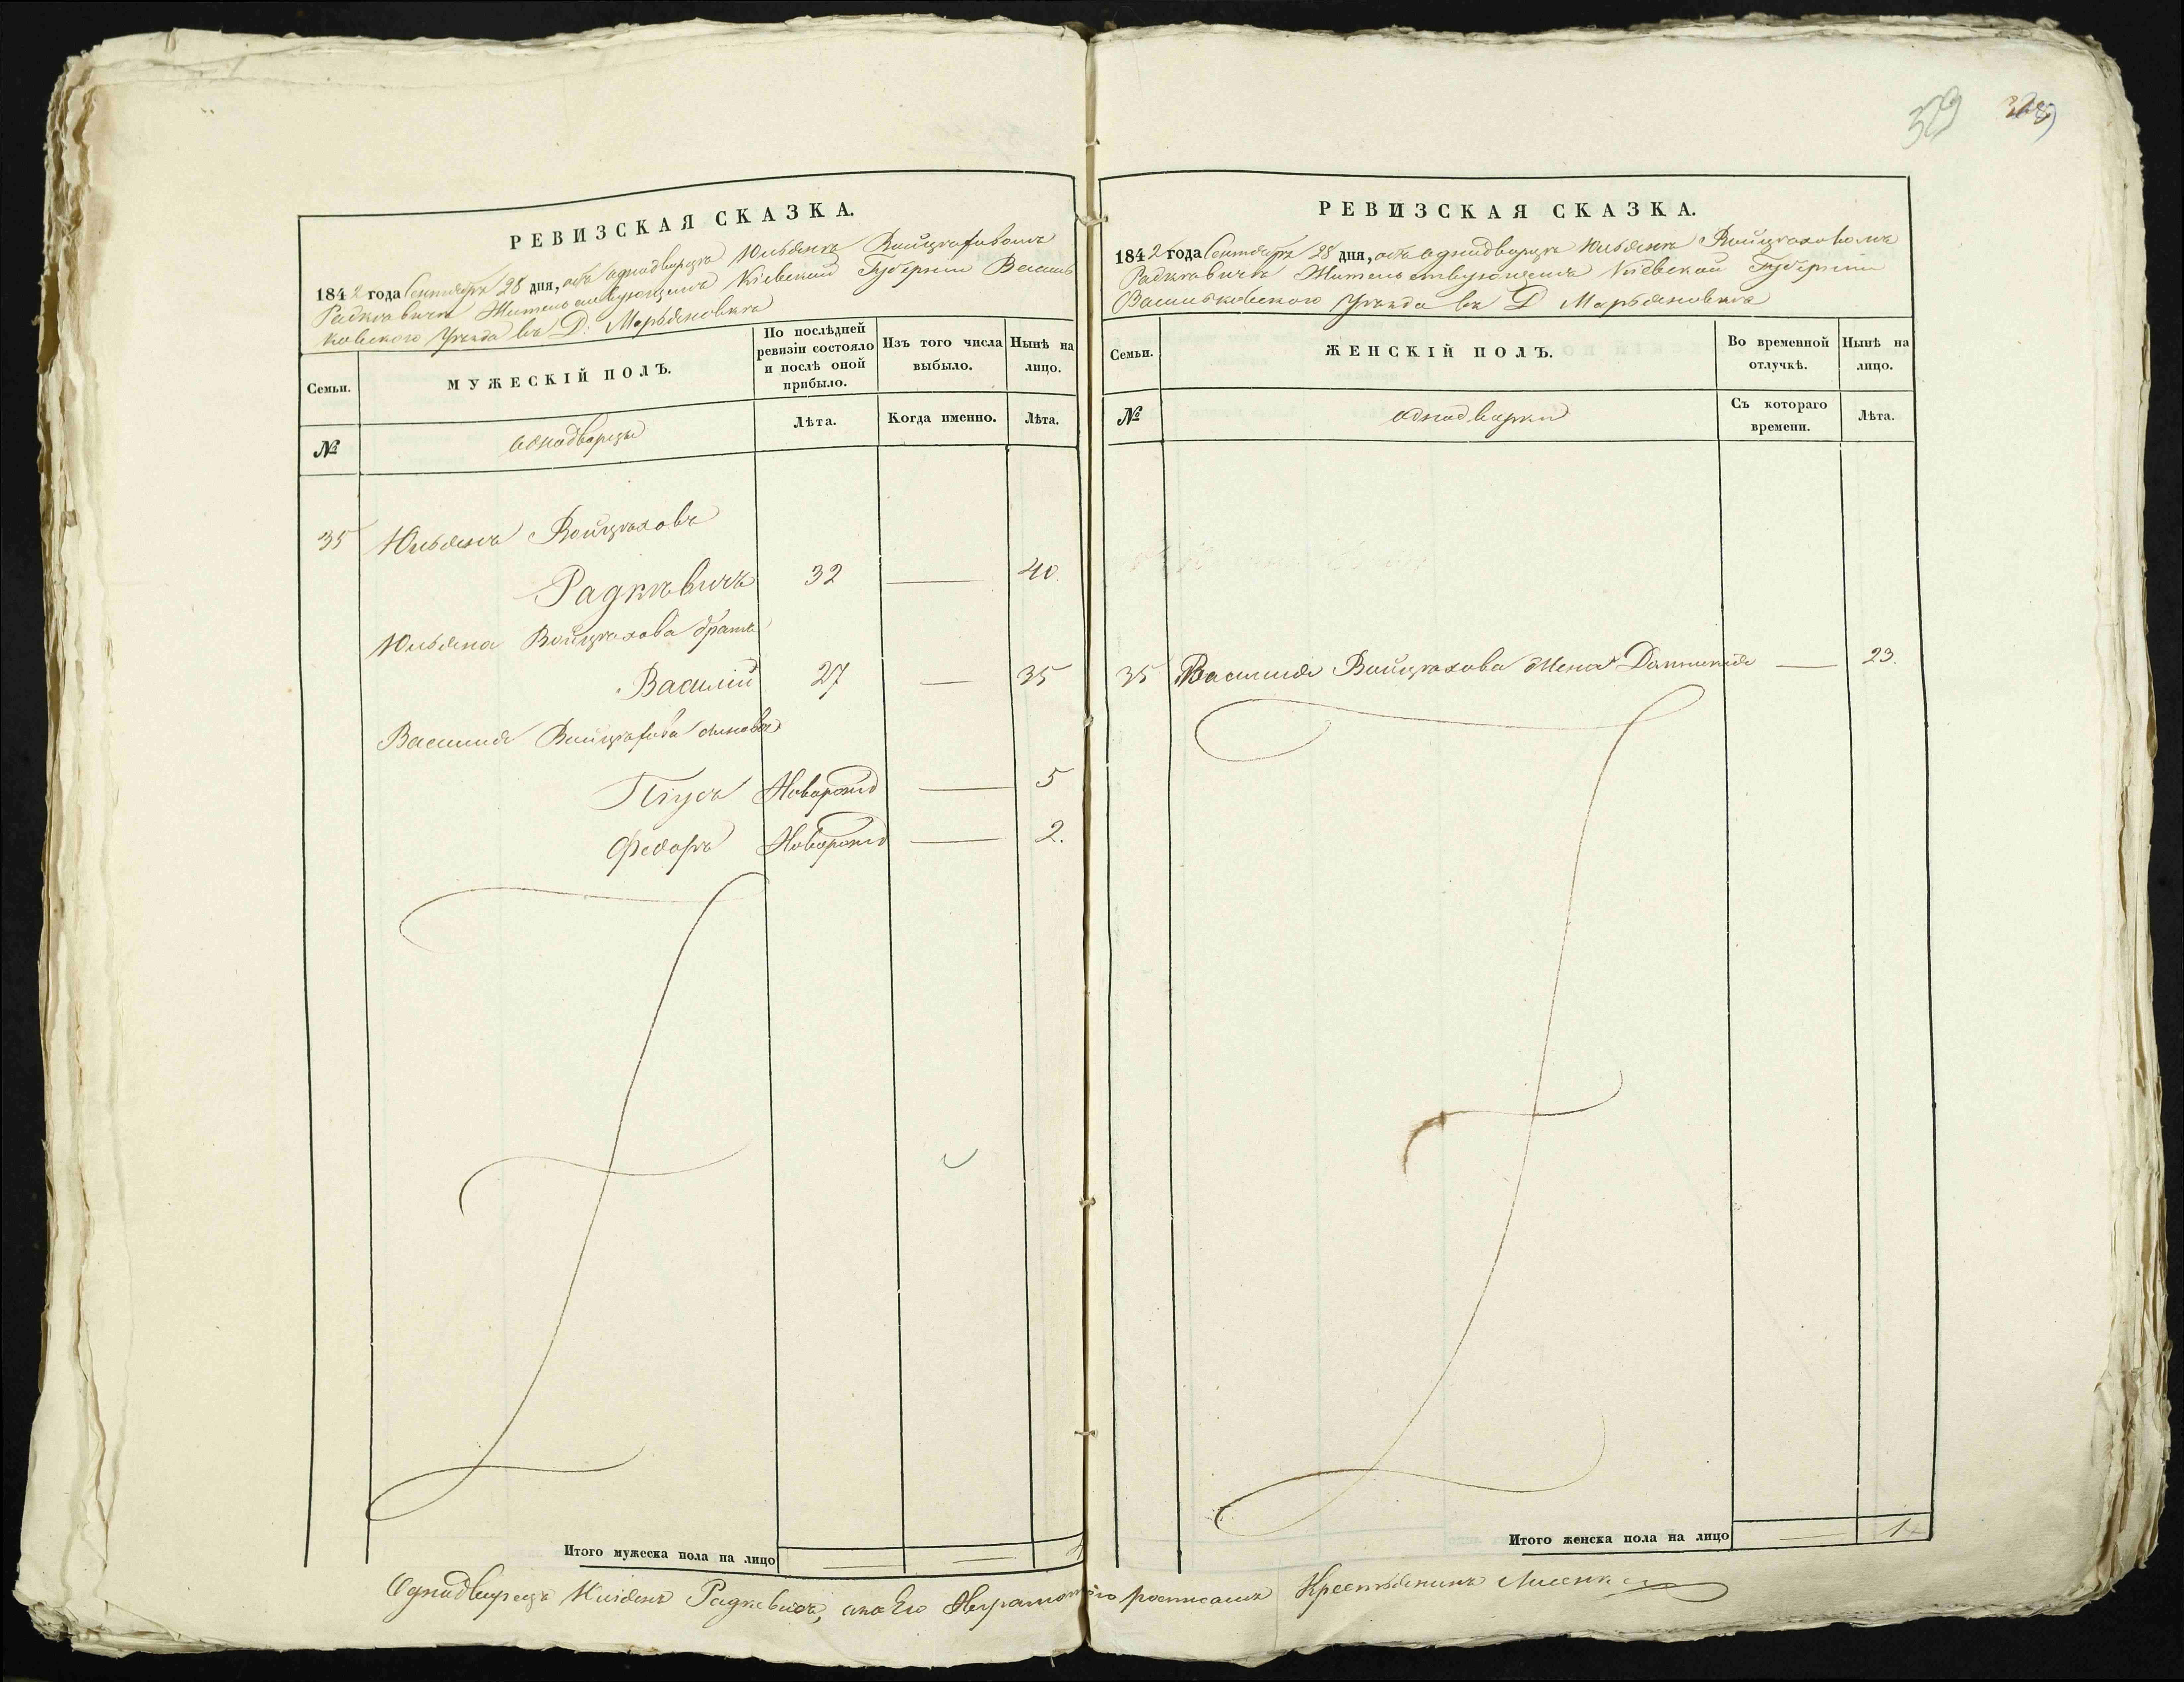 379
РЕВИЗСКАЯ СКАЗКА.
1842 года Сентября 28 дня, объ однодворце Юльяне Войцеховомъ
Радкевиче Жительствующемъ Кіевской Губерніи Василь
ковского Уезда въ Д: Марьяновке
Семьи.
МУЖЕСКІЙ ПОЛЪ.
По послѣдней
ревизіи состояло
и послѣ оной
прибыло.
Изъ того числа
выбыло.
Нынѣ на
лицо.
№
однодворцы
Лѣта.
Когда именно.
Лѣта.
35 Юльянъ Войцеховъ
Радкевичъ 32 — 40.
Юльяна Войцехова братъ
Василій 27 — 35
Василия Войцехова сыновья
Піусъ Новорожд — 5
Федоръ Новорожд — 2.
Итого мужеска пола на лицо
РЕВИЗСКАЯ СКАЗКА.
1842 года Сентября 28 дня, объ однодворце Юльяне Войцеховомъ
Радкевиче Жительствующемъ Кіевской Губерніи
Васильковского Уезда въ Д Марьяновке
Семьи.
ЖЕНСКІЙ ПОЛЪ.
Во временной
отлучкѣ.
Нынѣ на
лицо.
№
однодворки
Съ котораго
времени.
Лѣта.
35 Василия Войцехова Жена Доминика — 23.
Итого женска пола на лицо — 1
Однодворецъ Юльянъ Радкевичъ, а по Его Неграмотного росписался Крестьянинъ